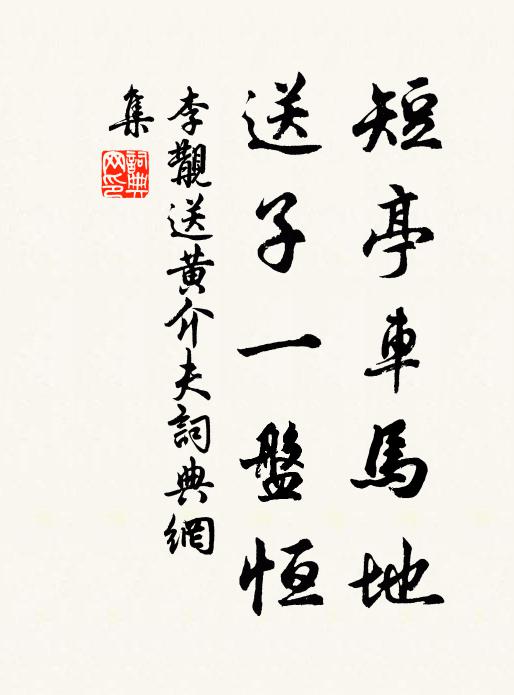 短亭車馬地
送子一盤恒
李觀送黃介夫詞典網
集
詞典
网印